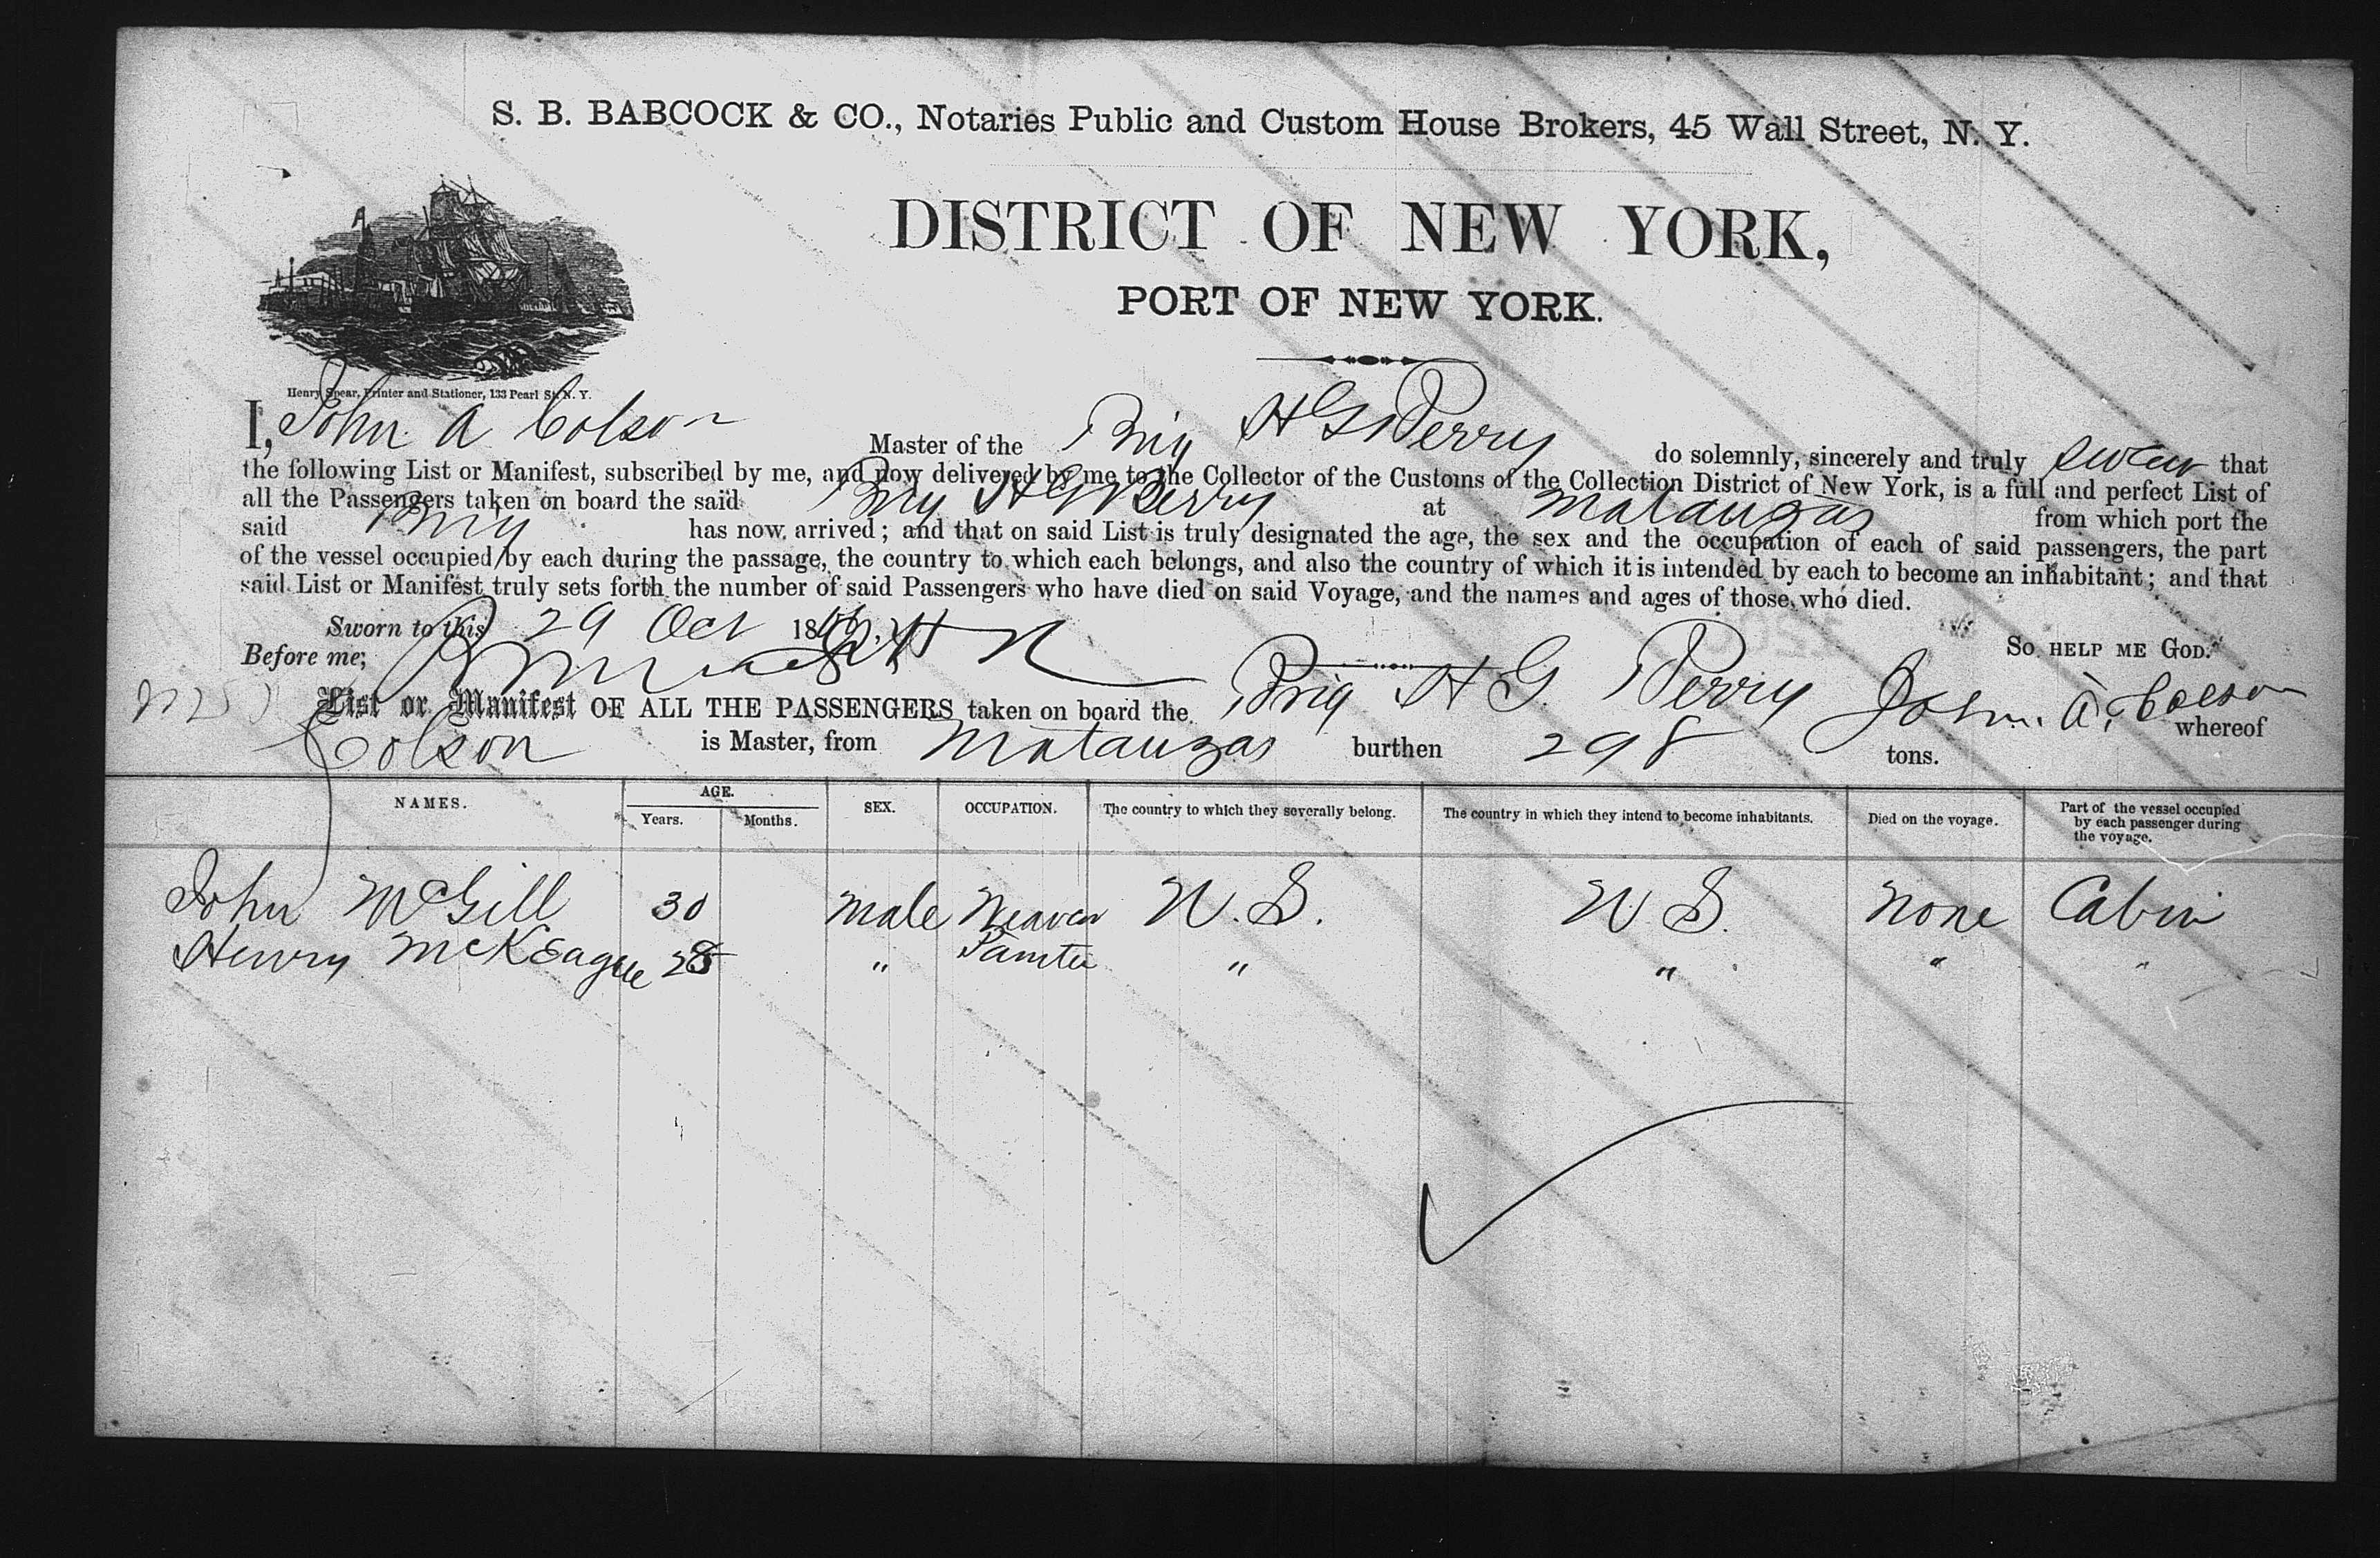 S. B. BABCOCK & CO., Notaries Public and Custom House Brokers, 45 Wall Street, N. Y.
DISTRICT OF NEW YORK,
PORT OF NEW YORK.
Henry Spear, Printer and Stationer, 133 Pearl St. N. Y.
I, John A Colson Master of the Brig H G Berry do solemnly, sincerely and truly swear that
the following List or Manifest, subscribed by me, and now delivered by me to the Collector of the Customs of the Collection District of New York, is a full and perfect List of
all the Passengers taken on board the said Brig H G Berry at Matanzas from which port the
said Brig has now arrived; and that on said List is truly designated the age, the sex and the occupation of each of said passengers, the part
of the vessel occupied by each during the passage, the country to which each belongs, and also the country of which it is intended by each to become an inhabitant; and that
said List or Manifest truly sets forth the number of said Passengers who have died on said Voyage, and the names and ages of those who died.
Sworn to this 29 Oct 186
So HELP ME GOD.
Before me;
List or Manifest OF ALL THE PASSENGERS taken on board the Brig H G. Berry John. A. Colson whereof
Colson is Master, from Matanzas burthen 298 tons.
NAMES. AGE. Years. Months. SEX. OCCUPATION. The country to which they severally belong. The country in which they intend to become inhabitants. Died on the voyage. Part of the vessel occupied by each passenger during the voyage.
John McGill 30 Male Weaver U. S. U S. None Cabin
Henry McKeague 28 " Painter " " " "